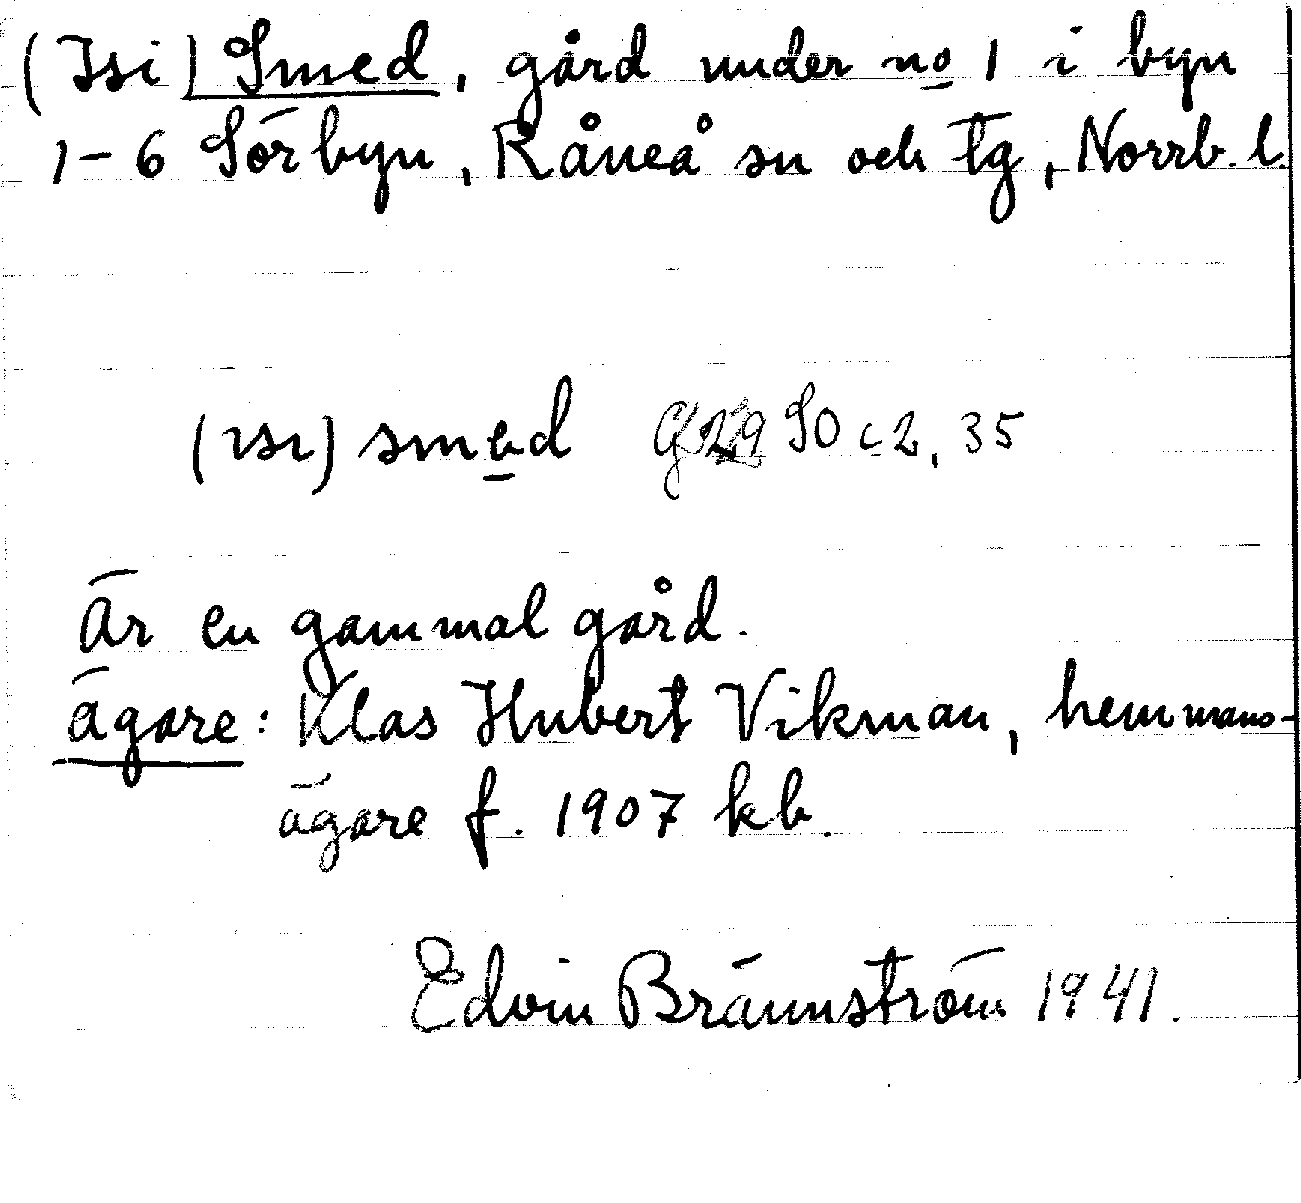 (Isi) Smed, gård under no 1 i byn
1-6 Sörbyn, Råneå sn och tg, Norrb. l.
(ısı) smed SO c2, 35
Är en gammal gård.
ägare: Klas Hubert Vikman, hemmans-
ägare f. 1907 kb.
Edvin Brännström 1941.